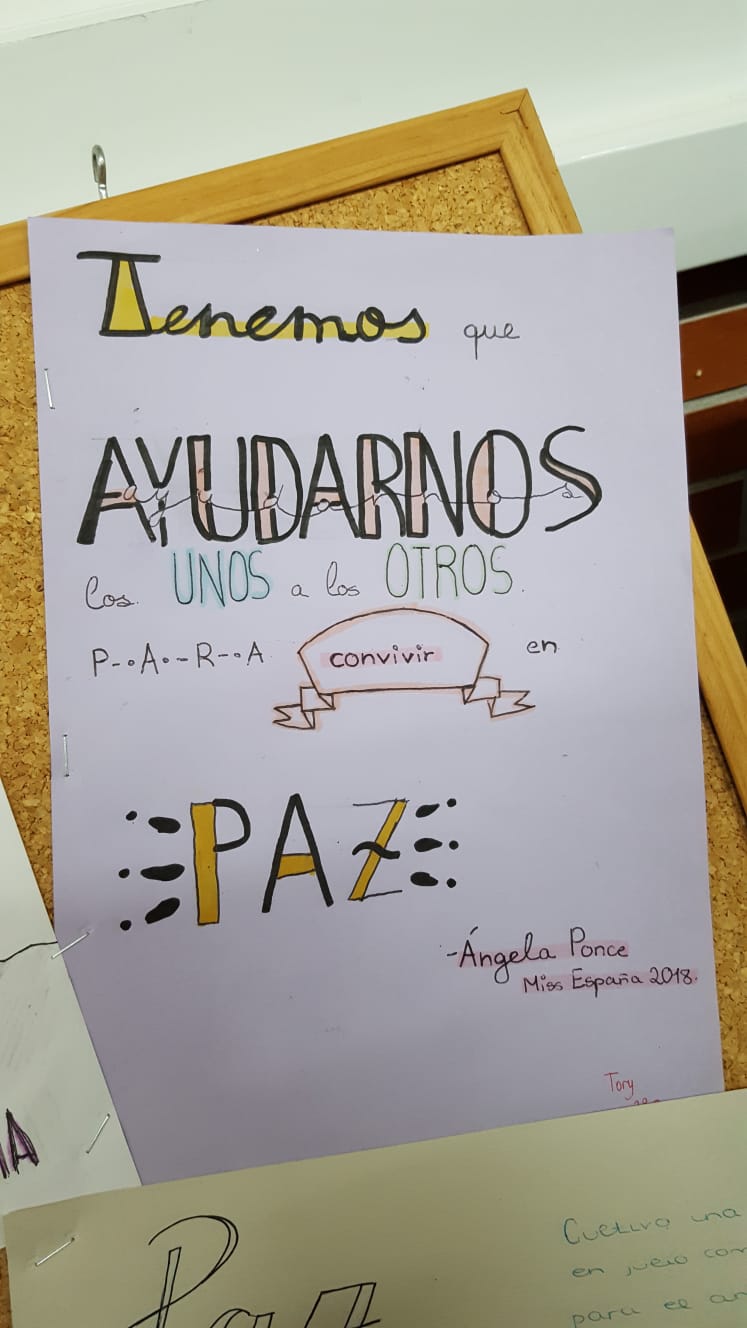 Tenemos que
AYUDARNOS
ayudarnos
los UNOS a los OTROS.
P--.A.--R--.A convivir en
PAZ
-Ángela Ponce
Miss España 2018.
Tory
IA
Cultiva una
en julio com
para el am